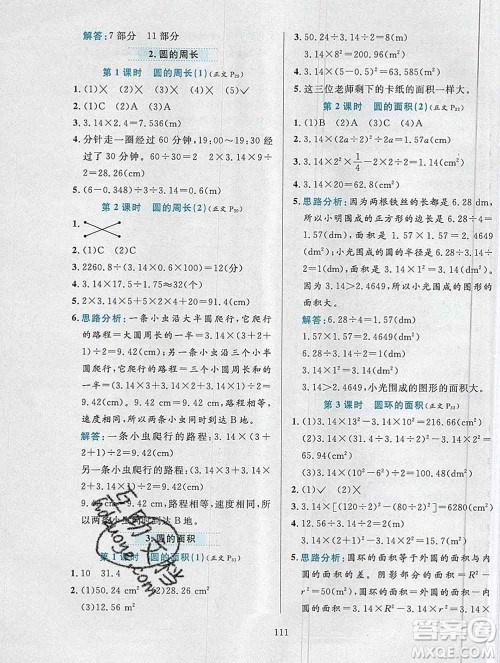 解答:7 部分　11 部分
2. 圆的周长
第 1 课时　圆的周长(1)(正文 P₂₉)
1. (1)×　(2)√　(3)×
2. (1)C　(2)A　(3)A
3. 3.14×2.5=7.85(m)
4. 分针走一圈经过 60 分钟,19:00~19:30 经过
了 30 分钟,30÷60=1/2　2×3.14×9×1/2=
28.26(cm)
5. (0.5×2+0.5)×3.14=4.71(m)
第 2 课时　圆的周长(2)(正文 P₃₀)
1.
2. (1)C　(2)A
3. 2260.8÷(3.14×0.6×100)=12(分)
4. 3.14×10÷1.75≈18(个)
5. 2×3.14×5÷2+5×2=25.7(cm)
6. 思路分析:一条小虫沿大半圆爬行,它爬
行的路程=大圆周长的一半=3.14×(3+
2+1)÷2=9.42(cm);另一条小虫沿三个小
半圆爬行,它爬行的路程=三个小圆周长
和的一半=(3.14×3+3.14×2+3.14×
1)÷2=9.42(cm)。两条小虫爬行的路程
相等,速度相同,所以两条小虫同时到
达 B 地。
解答:一条小虫爬行的路程:3.14×(3+
2+1)÷2=9.42(cm)
另一条小虫爬行的路程:(3.14×3+3.14×
2+3.14×1)÷2=9.42(cm)
9.42 cm=9.42 cm,速度相同,所
以两条小虫同时到达 B 地。
3. 圆的面积
第 1 课时　圆的面积(1)(正文 P₃₁)
1. 10　31.4
2. (1)28.26 cm²
(2)12.56 cm²
3. 25.12÷3.14÷2=4(m)
3.14×4²=50.24(m²)
4. 3.14×6²-(6×2)×6÷2=77.04(cm²)
5. 这三位老师剩下的卡纸的面积一样大。
第 2 课时　圆的面积(2)(正文 P₃₂)
1. (1)B　(2)A　(3)A
2. 4a²-3.14×(2a÷2)²=1.72
3. 3.14×2²×1/4=3.14(m²)
4. 3.14×20=62.8(m²)
5. 思路分析:因为两根铁丝的长都是 6.28 dm,
所以小明围成的正方形的边长为 6.28÷
4=1.57(dm),正方形的面积为 1.57×
1.57=2.4649(dm²);小光围成的圆的半径为 6.28÷3.14÷
2=1(dm),圆的面积为 3.14×1²=
3.14(dm²),3.14>2.4649,小光围成的图形的
面积大。
解答:6.28÷4=1.57(dm)
1.57×1.57=2.4649(dm²)
6.28÷3.14÷2=1(dm)
3.14×1²=3.14(dm²)
3.14>2.4649,小光围成的图形的面积大。
第 3 课时　圆环的面积(正文 P₃₃)
1. (1)3.14×(3²-2²)=15.7(cm²)
(2)3.14×(6²-5²)=34.54(cm²)
2. 3.14×[(120÷2)²-(80÷2)²]=6280(cm²)
3. 12.56÷3.14÷2=2(m)
3.14×(2+1)²-3.14×2²=15.7(m²)
4. (1)×　(2)√　(3)√
5. 思路分析:圆环的面积等于外圆的面积
减去内圆的面积。阴影部分的面积=R²-
r²=15 cm²,圆环的面积=3.14×R²-
3.14×r²=3.14×(R²-r²)=3.14×
互助文档
huzuowd.com
111
答案圈
MXQE.COM